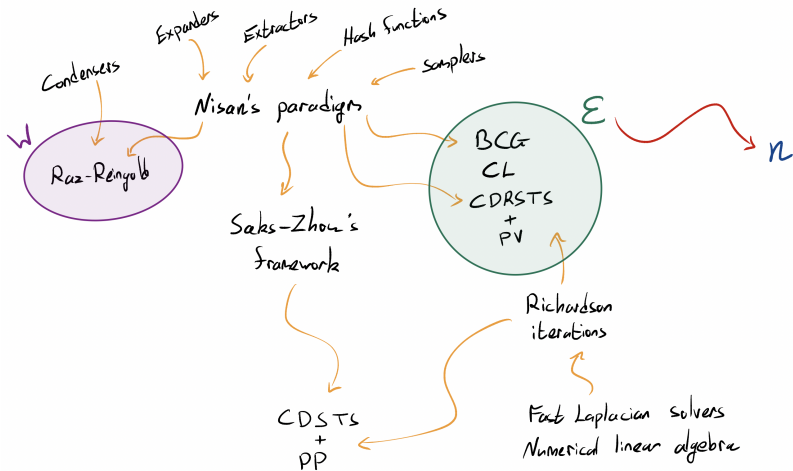 Expanders
Extractors
Hash functions
Samplers
Condensers
Nisan's paradigm
W
Raz-Reingold
ε
n
BCG
CL
CDRSTS
+
PV
Saks-Zhou's
framework
Richardson
iterations
CDSTS
+
PP
Fast Laplacian solvers
Numerical linear algebra